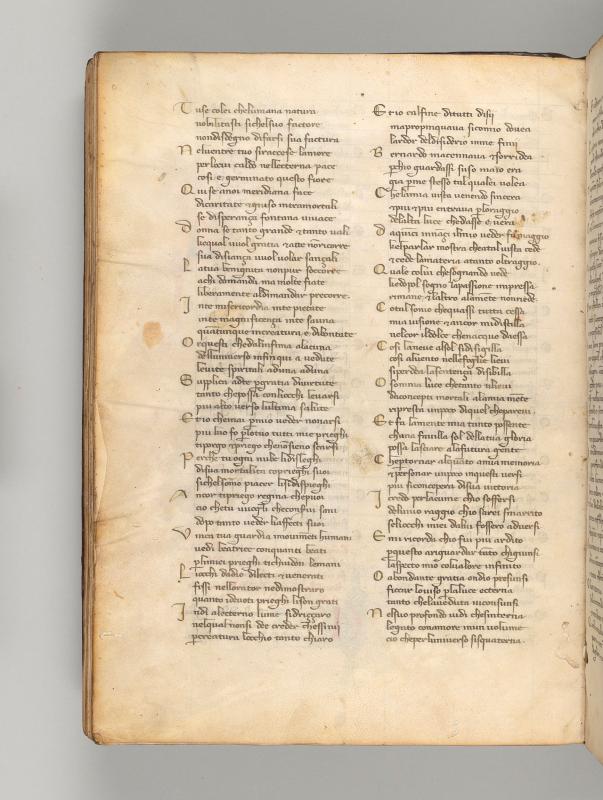 Tuse colei chelumana natura
nobilitasti sichelsuo factore
nondisdegno difarsi sua factura
Nelventre tuo siracese lamore
perlocui caldo nelleterna pace
cosi e germinato questo fiore
Qui se anoi meridiana face
dicaritate & giuso intramortali
se disperança fontana vivace
Donna se tanto grande & tanto vali
kequal vuol gratia & atte nōricorre
sua disiança vuol volar sançali
Latua benignita nonpur socorre
achi domāda ma molte fiate
liberamente aldimandar precorre.
Inte misericordia inte pietate
inte magnificença inte sauna
quātunque increatura e dibontate
Or questi chedalinfima alacuna
delluniverso infinqui a vedute
levite spiritali aduna aduna
Supplica adte pgratia divirtute
tanto chepossa conliocchi levarsi
piu alto verso lultima salute
Et io chemai pmio veder nonarsi
piu kio fo plosuo tutti mie prieghi
tiporgo & priego chenōsieno scarsi
Perche tu ogni nube lidisleghi
disua mortalita coprieghi tuoi
sichelsōmo piacer lisidispieghi
Ancor tipriego regina chepuoi
cio chetu vuogli checonsivi sani
dopo tanto veder liaffecti suoi
Vinca tua guardia imovimēti humani
vedi beatrice conquanti beati
plimiei prieghi tichiudon lemani
Liocchi dadio dilecti & venerati
fissi nellorator nedimostraro
quanto idevoti prieghi lison grati
Indi aletterno lume sidriççaro
nelqual nonsi dee creder chessinvii
percreatura locchio tanto chiaro
Et io calfine ditutti disii
mapropinquava siconio dovea
lardor deldisiderio inme finii
Bernardo macennava & sorridea
pchio guardassi suso ma io era
gia pme stesso tal qualei volea
Chelamia vista venendo sincera
& piu & piu entrava ploraggio
delalta luce chedasse e vera
Daquici innāçi ilmio veder fu maggio
kelparlar nostra cheatal vista cede
& cede lamateria atanto oltraggio.
Quale colui chesognando vede
kedopol sogno lapassione impressa
rimane & laltro alamete nonriede
Cotal sonio chequassi tutta cessa
mia visione & ancor midistilla
nelcor ildolce chenacque daessa
Cosi laneve alsol sidisigilla
cosi alvento nellefoglie lievi
siperdea lasentença disibilla
O somma luce chetanto tilievi
daconcepti mortali alamia mēte
ripresta unpoco diquel cheparevi.
Et fa lamente mia tanto possente
chuna favilla sol dellatua gloria
possa lasciare alafutura gente
Cheptornar alquato amia memoria
& personar unpoco inquesti versi
piu siconcepera ditua vittoria
Icredo perlacume chio soffersi
delvivo raggio chio sarei smarrito
seliocchi miei dalui fossero adversi
Emi ricorda chio fui piu ardito
pquesto ariguardar tāto chigiunsi
laspecto mio colvalore infinito
O abondante gratia ondio presunsi
ficcar loviso plaluce ecterna
tanto chelaveduta viconsunsi
Nelsuo profondo vidi chesinterna
legato conamore inun volume
cio cheperluniverso sisquaterna.